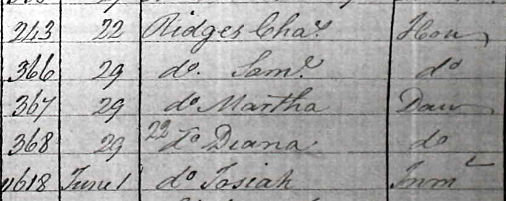 243 22 Ridges Chas. Hou
366 29 do. Saml. do
367 29 do Martha Dau
368 29 22 do Diana do
618 June 1 do Josiah Inm